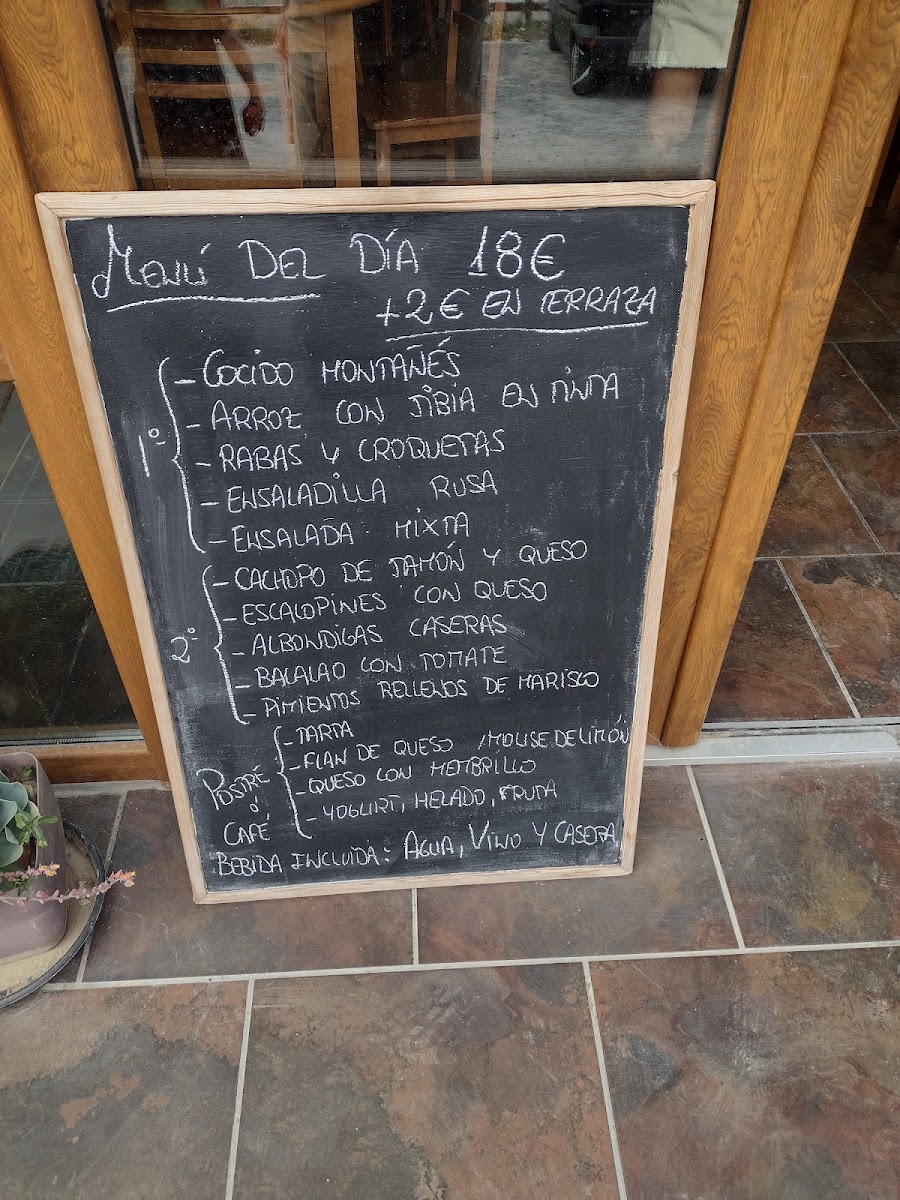 Menú DEL DÍA 18€
+2€ EN TERRAZA
1º
- COCIDO MONTAÑÉS
- ARROZ CON JIBIA EN TINTA
- RABAS Y CROQUETAS
- ENSALADILLA RUSA
- ENSALADA MIXTA
2º
- CACHOPO DE JAMÓN Y QUESO
- ESCALOPINES CON QUESO
- ALBONDIGAS CASERAS
- BACALAO CON TOMATE
- PIMIENTOS RELLENOS DE MARISCO
POSTRE
o'
CAFÉ
- TARTA
- FLAN DE QUESO /MOUSE DE LIMÓN
- QUESO CON MEMBRILLO
- YOGURT, HELADO, FRUTA
BEBIDA INCLUIDA: AGUA, VINO Y CASERA